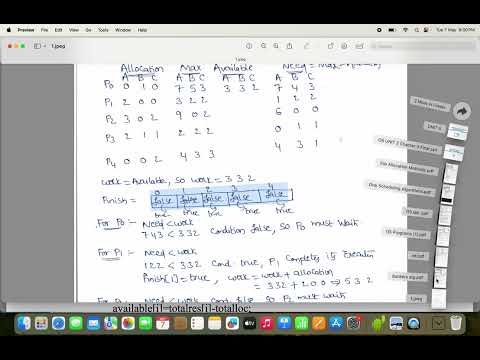 Preview File Edit View Go Tools Window Help
Tue 7 May 9:00 PM
1.jpeg
1.jpeg
Allocation Max Available Need = Max-
A B C A B C A B C A B C
P0 0 1 0 7 5 3 3 3 2 7 4 3
P1 2 0 0 3 2 2 1 2 2
P2 3 0 2 9 0 2 6 0 0
P3 2 1 1 2 2 2 0 1 1
P4 0 0 2 4 3 3 4 3 1
work = Available, so work = 3 3 2
0 1 2 3 4
Finish = false false false false false
true true true true true
For P0 :- Need < work
7 4 3 < 3 3 2 Condition false, So P0 must wait
For P1 :- Need < work
1 2 2 < 3 3 2 Cond true, P1 Completes its Execution
Finish[i] = true, work = work + allocation
= 3 3 2 + 2 0 0 ⇒ 5 3 2
Need < work Cond false so P2 must wait
available[i]=totalres[i]-totalloc;
2 Move in
UNIT 6
OS UNIT 2 Chapter II Final.pdf
File Allocation Methods.pdf
Disk Scheduling Algorithms.pdf
OS Programs (1).pdf
bankers alg.pdf
1.jpeg